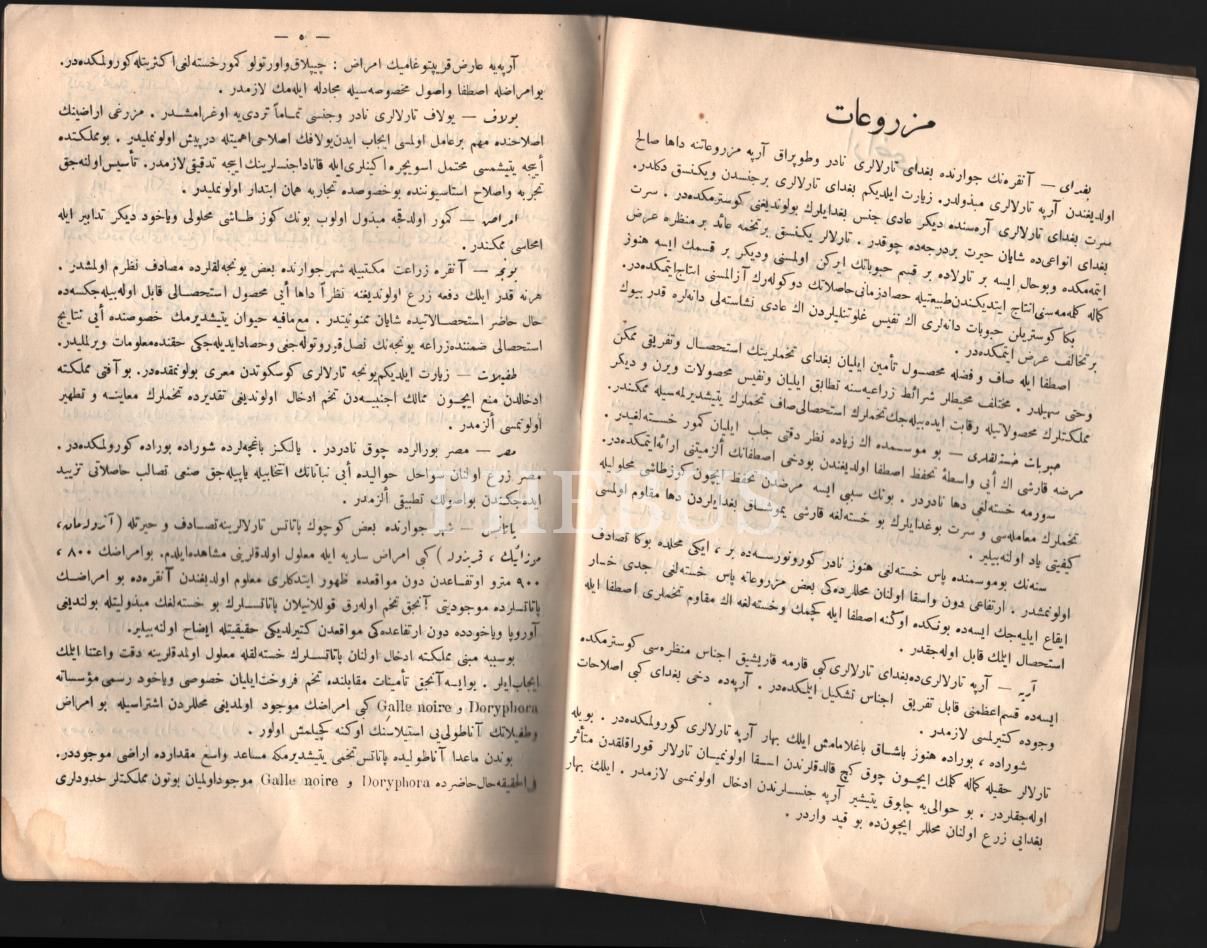 مزروعات
بغدای — آنقره‌نك جوارنده بغدای تارلالری نادر وطوپراق آرپه مزروعاتنه داها صالح
اولدیغندن آرپه تارلالری مبذولدر. زیارت ایلدیكم بغدای تارلالری برجنسدن ویكنسق دكلدر.
سرت بغدای تارلالری آره‌سنده دیكر عادی جنس بغدایلرك بولوندیغنی كوسترمكده‌در . سرت
بغدای انواعی‌ده شایان حیرت بردرجه‌ده چوقدر . تارلالر یكنسق برتخمه عائد بر منظره عرض
ایتمه‌مكده وبوحال ایسه بر تارلاده بر قسم حبوباتك ایركن اولمسنی ودیكر بر قسمك ایسه هنوز
كماله كلمه‌مه‌سنی انتاج ایتدیكندن طبیعتیله حصادزمانی حاصلاتك دوكوله‌رك آزالمسنی انتاج ایتمكده‌در.
بكا كوستریلن حبوبات دانه‌لری اك نفیس غلوتنلیلردن اك عادی نشاسته‌لی دانه‌لره قدر بیوك
بر تخالف عرض ایتمكده‌در .
اصطفا ایله صاف و فضله محصول تأمین ایلیان بغدای تخملرینك استحصال وتفریقی ممكن
وحتی سهیلدر . مختلف محیطلر شرائط زراعیه‌سنه تطابق ایلیان ونفیس محصولات ویرن و دیكر
مملكتلرك محصولاتیله رقابت ایده‌بیله‌جك تخملرك استحصالی صاف تخملرك یتیشدیرلمه‌سیله ممكندر.
حبوبات خسته‌لقلری — بو موسمده اك زیاده نظر دقتی جلب ایلیان كمور خسته‌لغیدر .
مرضه قارشی اك أیی واسطهٔ تحفظ اصطفا اولدیغندن بودخی اصطفانك ألزمیتنی ارائه‌ایتمكده‌در.
سورمه خسته‌لغی دها نادردر . بونك سببی ایسه مرضدن تحفظ ایچون كوزطاشی محلولیله
تخملرك معامله‌سی و سرت بوغدایلرك بو خسته‌لغه قارشی یموشاق بغدایلردن دها مقاوم اولمسی
كیفیتی یاد اولنه‌بیلیر .
سنه‌نك بوموسمنده پاس خسته‌لغی هنوز نادر كورونورسه‌ده بر ، ایكی محلده بوكا تصادف
اولونمشدر . ارتفاعی دون واسقا اولنان محللرده‌كی بعض مزروعاته پاس خسته‌لغی جدی خسار
ایقاع ایلیه‌جك ایسه‌ده بونكده اوكنه اصطفا ایله كچمك وخسته‌لغه اك مقاوم تخملری اصطفا ایله
استحصال ایتمك قابل اوله‌جقدر .
آرپه — آرپه تارلالری‌ده بغدای تارلالری‌كبی قارمه قاریشیق اجناس منظره‌سی كوسترمكده
ایسه‌ده قسم‌اعظمنی قابل تفریق اجناس تشكیل ایلمكده‌در . آرپه‌ده دخی بغدای كبی اصلاحات
وجوده كتیرلمسی لازمدر .
شوراده ، بوراده هنوز باشاق باغلامامش ایلك بهار آرپه تارلالری كورولمكده‌در . بویله
تارلالر حقیله كماله كلمك ایچون چوق كچ قالدقلرندن اسقا اولونمیان تارلالر قوراقلقدن متأثر
اوله‌جقلردر . بو حوالی‌یه چابوق یتیشیر آرپه جنسلرندن ادخال اولونمسی لازمدر . ایلك بهار
بغدایی زرع اولنان محللر ایچون‌ده بو قید واردر .
— ٥ —
آرپه‌یه عارض قریپتوغامیك امراض : چیپلاق واورتولو كمور خسته‌لغی اكثریتله كورولمكده‌در.
بوامراضله اصطفا واصول مخصوصه‌سیله مجادله ایله‌مك لازمدر .
یولاف — یولاف تارلالری نادر وجنسی تماماً تردی‌یه اوغرامشدر . مزرغی اراضینك
اصلاحنده مهم برعامل اولمسی ایجاب ایدن یولافك اصلاحی اهمیتله درپیش اولونملیدر . بومملكتده
أییجه یتیشمسی محتمل اسویچره اكینلری ایله قانادا جنسلرینك اییجه تدقیقی لازمدر. تأسیس اولنه‌جق
تجربه واصلاح استاسیوننده بوخصوصده تجاربه همان ابتدار اولونملیدر .
امراض — كمور اولدقجه مبذول اولوب بونك كوز طاشی محلولی ویاخود دیكر تدابیر ایله
امحاسی ممكندر .
یونجه — آنقره زراعت مكتبیله شهر جوارنده بعض یونجه‌لقلرده مصادف نظرم اولمشدر .
هرنه قدر ایلك دفعه زرع اولوندیغنه نظراً داها أیی محصول استحصالی قابل اوله‌بیله‌جكسه‌ده
حال حاضر استحصالاتیده شایان ممنونیتدر . مع‌مافیه حیوان یتیشدیرمك خصوصنده أیی نتایج
استحصالی ضمننده زراعه یونجه‌نك نصل قوروتوله‌جغی وحصادایدیله‌جكی حقنده معلومات ویرلملیدر.
طفیلات — زیارت ایلدیكم یونجه تارلالری كوسكوتدن معری بولونمقده‌در. بو آفتی مملكته
ادخالدن منع ایچون ممالك اجنبیه‌دن تخم ادخال اولوندیغی تقدیرده تخملرك معاینه و تطهیر
اولونمسی ألزمدر .
مصر — مصر بورالرده چوق نادردر . یالكز باغچه‌لرده شوراده بوراده كورولمكده‌در.
مصر زرع اولنان سواحل حوالیده أیی نباتاتك انتخابیله یاپیله‌جق صنعی تصالب حاصلاتی تزیید
ایده‌جكندن بواصولك تطبیقی ألزمدر .
پاتاتس — شهر جوارنده بعض كوچوك پاتاتس تارلالرینه تصادف و حیرتله (
موزائیك ، ) كبی امراض ساریه ایله معلول اولدقلرینی مشاهده‌ایلدم. بوامراضك ٨٠٠ ،
٩٠٠ مترو ارتفاعدن دون مواقعده ظهور ایتدكلری معلوم اولدیغندن آنقره‌ده بو امراضك
پاتاتسلرده موجودیتی آنجق تخم اوله‌رق قوللانیلان پاتاتسلرك بو خسته‌لغك مبذولیتله بولندیغی
آوروپا ویاخودده دون ارتفاعده‌كی مواقعدن كتیرلدیكی حقیقتیله ایضاح اولنه‌بیلیر.
بوسببه مبنی مملكته ادخال اولنان پاتاتسلرك خسته‌لقله معلول اولمدقلرینه دقت واعتنا ایتمك
ایجاب‌ایلر . بوایسه آنجق تأمینات مقابلنده تخم فروخت ایلیان خصوصی ویاخود رسمی مؤسساته
Doryphora و Galle noire كبی امراضك موجود اولمدیغی محللردن اشتراسیله بو امراض
وطفیلاتك آناطولی‌یی استیلاسنك اوكنه كچیلمش اولور .
بوندن ماعدا آناطولیده پاتاتس تخمی یتیشدیرمكه مساعد واسع مقدارده اراضی موجوددر.
فی‌الحقیقه حال حاضرده Doryphora و Galle noire موجود اولمیان بوتون مملكتلر حدودلری
PHEBUS